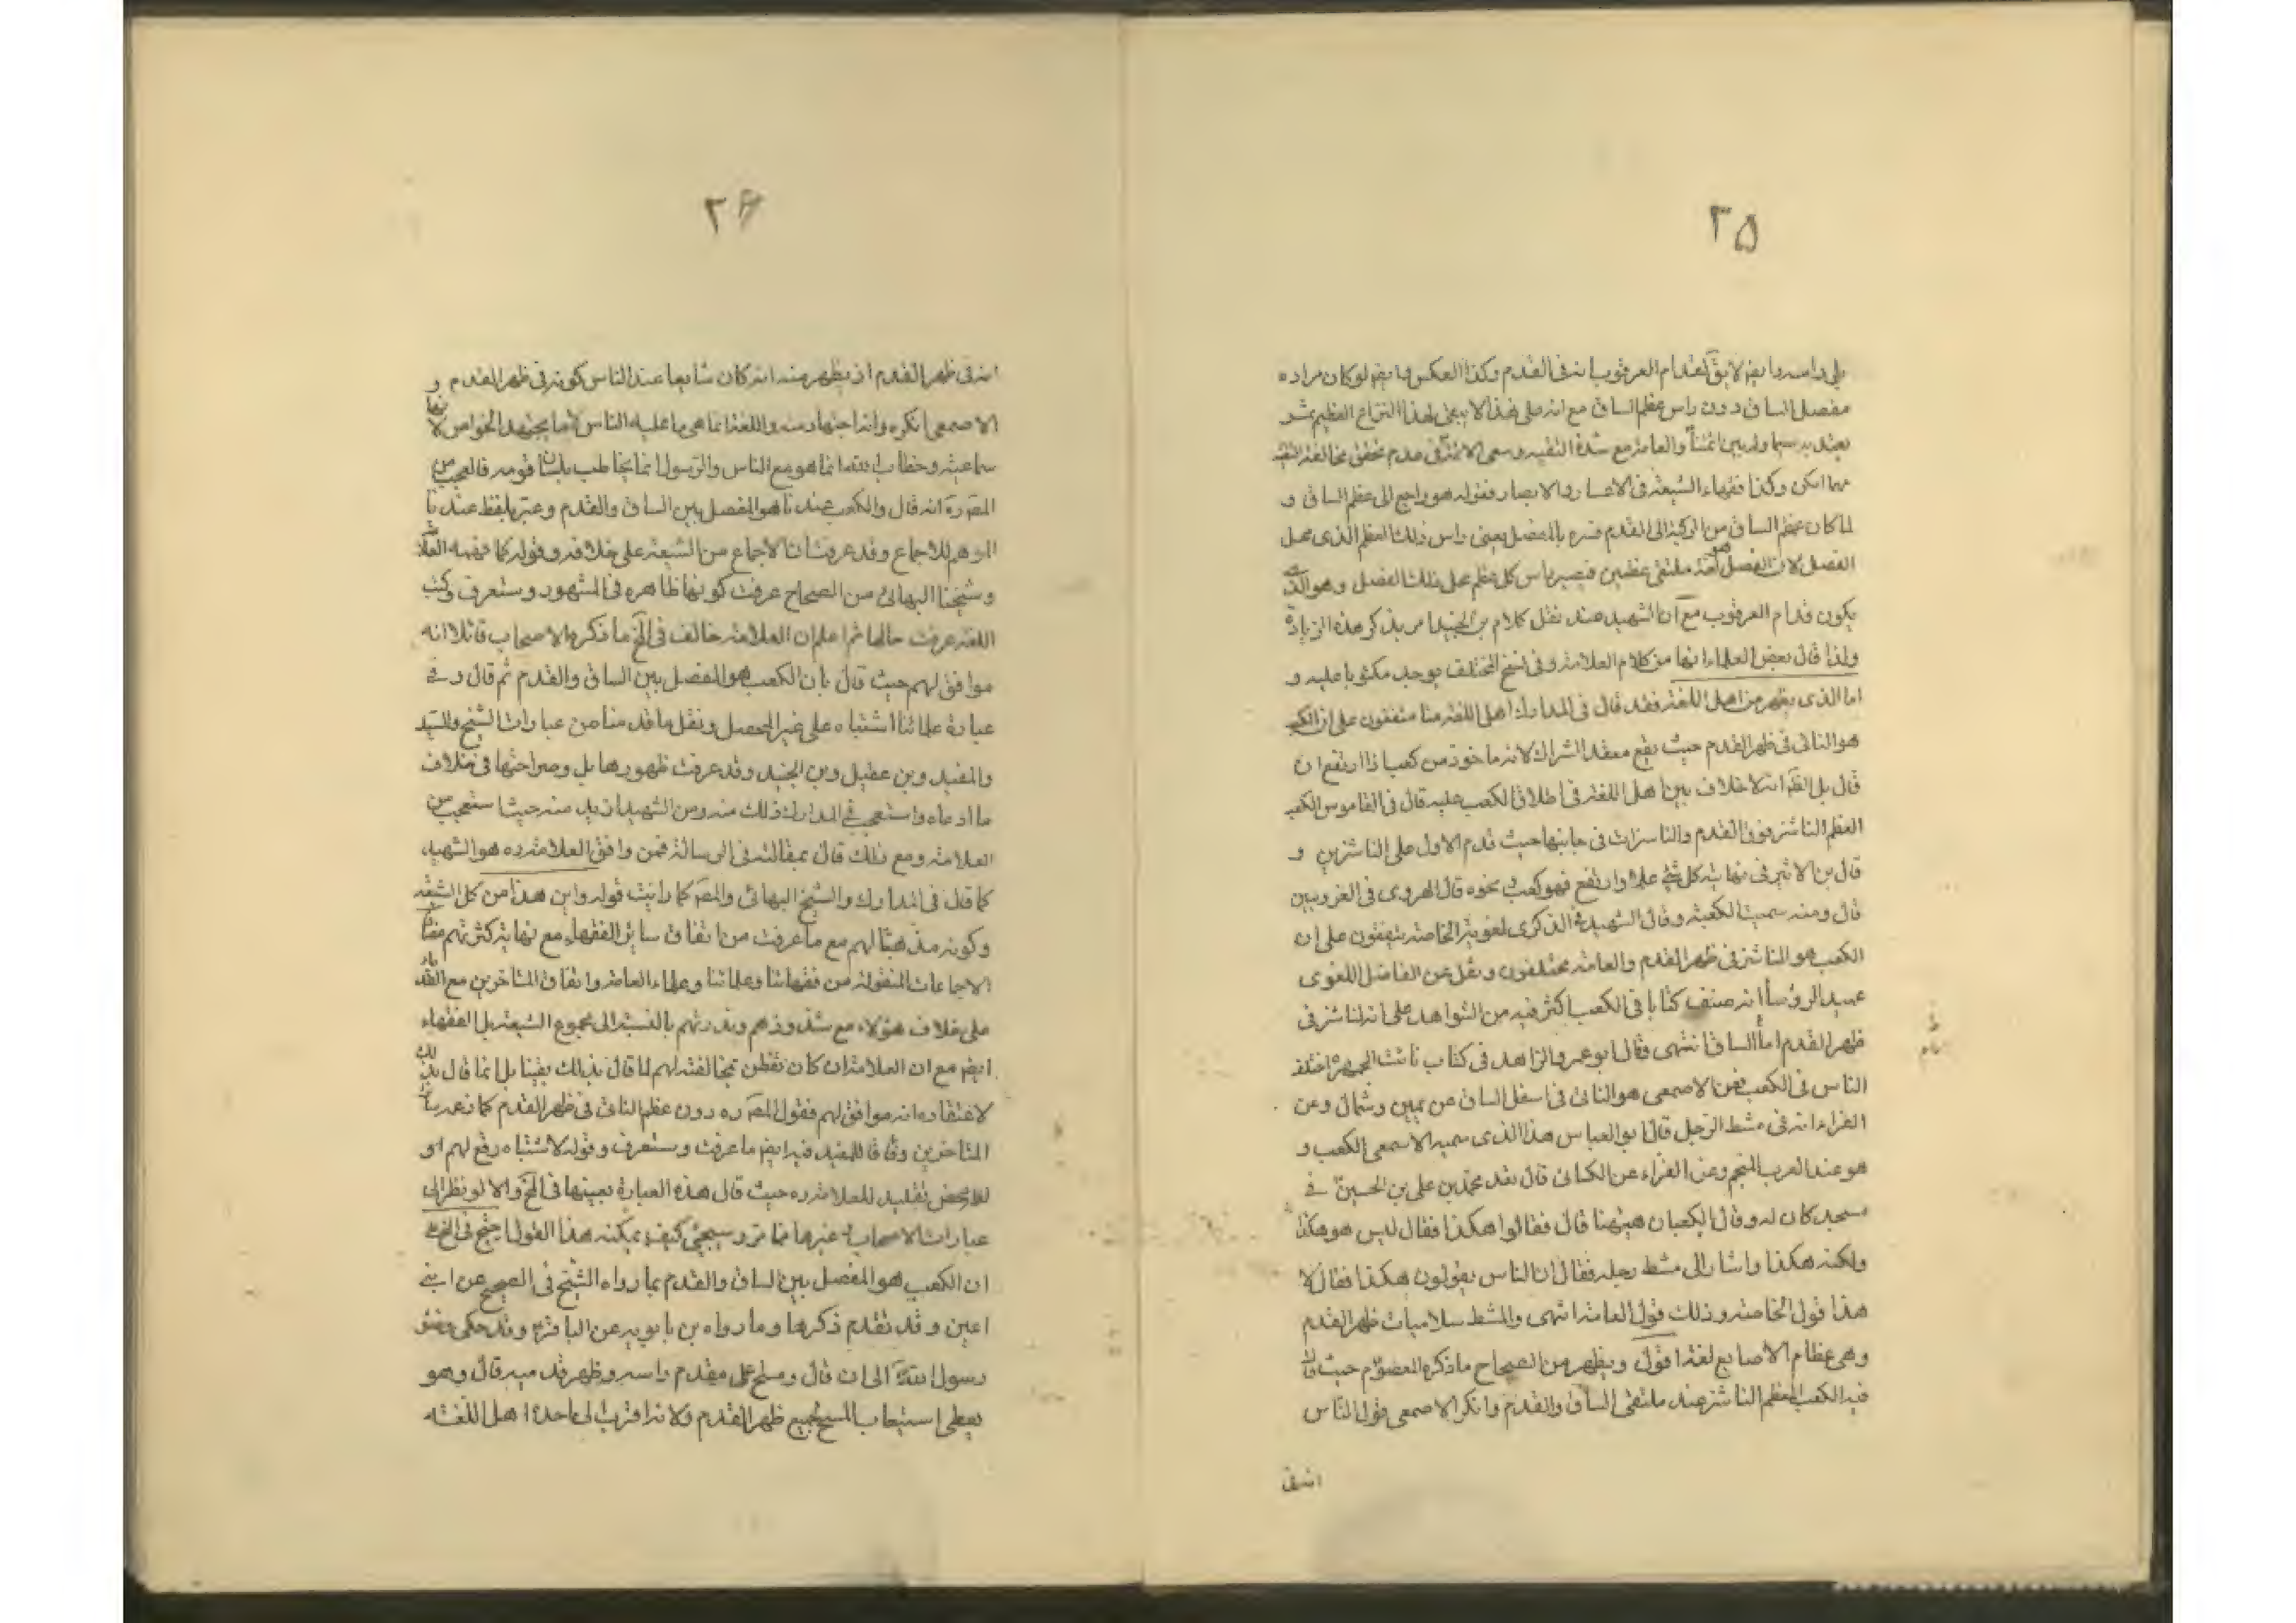 ٢٥
على راسه وايضا لا يق لقدام العرقوب انه في القدم وكذا العكس وايضا لو كان مراده
مفصل الساق دون راس عظم الساق مع انه على هذا لا يبقى لهذا النزاع العظيم ثمر
يعتد به سيما وله بين ائمتنا والعامة مع شدة التقيه وسعى الائمة في عدم تحقق مخالفة التقيه
مهما امكن وكذا فقهاء الشيعة في الاعصار والابصار فقوله هو راجع الى عظم الساق و
لما كان عظم الساق من الركبة الى القدم فسره بالمفصل يعنى راس ذلك العظم الذى محل
الفصل لان المفصل هو ملتقى عظمين فيصير راس كل عظم محل ذلك المفصل وهو الذى
يكون قدام العرقوب مع ان الشهيد عند نقل كلام بن الجنيد لم يذكر هذه الزيادة
ولذا قال بعض العلماء انها من كلام العلامة وفى نسخ المختلف يوجد مكتوبا عليه و
اما الذى يظهر من اهل اللغة فقد قال في المدارك اهل اللغه منا متفقون على ان الكعب
هو الناتى في ظهر القدم حيث يقع معقد الشراك لانه ماخوذ من كعب اذا ارتفع ان
قال بل الظ انه لا خلاف بين اهل اللغة في اطلاق الكعب عليه قال في القاموس الكعب
العظم الناشز فوق القدم والناشزان في جانبها حيث قدم الاول على الناشزين و
قال بن الاثير في نهايته كل شئ علا وارتفع فهو كعب ونحوه قال الهروى في الغريبين
قال ومنه سميت الكعبة وقال الشهيد في الذكرى لغوية الخاصة متفقون على ان
الكعب هو الناشز في ظهر القدم والعامة مختلفون ونقل عن الفاضل اللغوى
عميد الرؤسا انه صنف كتابا في الكعب اكثر فيه من الشواهد على انه الناشز في
ظهر القدم امام الساق انتهى وقال ابو عمر والزاهد في كتاب فائت الجمهرة اختلف
الناس في الكعب فعن الاصمعى هو الناتئ في اسفل الساق عن يمين وشمال وعن
الفراء انه في مشط الرجل قال ابو العباس هذا الذى سميه الاصمعى الكعب و
هو عند العرب المنجم وعن الفراء عن الكسائى قال قعد محمد بن على بن الحسين ع في
مسجد كان له وقال الكعبان هيهنا قال فقالوا هكذا فقال ليس هو هكذا
ولكنه هكذا واشار الى مشط رجله فقال ان الناس يقولون هكذا فقال لا
هذا قول الخاصة وذلك قول العامة انتهى والمشط سلاميات ظهر القدم
وهى عظام الاصابع لغة اقول ويظهر من الصحاح ما ذكره المعصوم حيث قال
فيه الكعب العظم الناشز عند ملتقى الساق والقدم وانكر الاصمعى قول الناس
انه في
٢٦
انه في ظهر القدم اذ يظهر منه انه كان شايعا عند الناس كونه في ظهر القدم و
الاصمعى انكره وانه اجتهاد منه واللغة انما هى ما عليه الناس لا ما يجتهد الخواص لا
سماعية وخطاب الله انما هو مع الناس والرسول انما يخاطب بلسان قومه فالعجب من
المص ره انه قال والكعب عندنا هو المفصل بين الساق والقدم وعبر بلفظ عندنا
الموهم للاجماع وقد عرفت ان الاجماع من الشيعة على خلافه وقوله كما فهمه العلامة
وشيخنا البهائى من الصحاح عرفت كونها ظاهره في المشهور وستعرف وكتب
اللغة عرفت حالها ثم اعلم ان العلامة خالف في الخ ما ذكره الاصحاب قائلا انه
موافق لهم حيث قال بان الكعب هو المفصل بين الساق والقدم ثم قال وفي
عبارة علمائنا اشتباه على غير المحصل ونقل ما قدمنا من عبارات الشيخ والسيد
والمفيد وبن عقيل وبن الجنيد وقد عرفت ظهورها بل وصراحتها في خلاف
ما ادعاه واستعجب في المدارك ذلك منه ومن الشهيد ازيد منه حيث استعجب من
العلامة ومع ذلك قال بمقالته في الرسالة فمن وافق العلامة ره هو الشهيد،
كما قال في المدارك والشيخ البهائى والمص كما رايت قوله واين هذا من كل الشيعه
وكونه مذهبا لهم مع ما عرفت من اتفاق سائر الفقهاء مع نهاية كثرتهم
الاجماعات المنقولة من فقهائنا وعلمائنا وعلماء العامة واتفاق المتاخرين مع القدماء
على خلاف هؤلاء مع شذوذهم وندرتهم بالنسبة الى مجموع الشيعة بل الفقهاء
ايضا مع ان العلامة ان كان تفطن بمخالفته لهم لما قال بذلك يقينا بل انما قال بذلك
لاعتقاده انه موافق لهم فقول المص ره دون عظم الناتى في ظهر القدم كما زعم
المتاخرين وفاقا للمفيد فيه ايضا ما عرفت وستعرف وقوله لاشتباه رفع لهم او
محض تقليد للعلامة ره حيث قال هذه العبارة بعينها في الخ والا لو نظر الى
عبارات الاصحاب وغيرها مما مر وسيجئ كيف يمكنه هذا القول احتج في الخ على
ان الكعب هو المفصل بين الساق والقدم بما رواه الشيخ في الصحيح عن ابنى
اعين وقد تقدم ذكرها وما رواه بن بابويه عن الباقر ع وقد حكى وضوء
رسول الله ص الى ان قال ومسح على مقدم راسه وظهر قدميه قال وهو
يعطى استيعاب المسح لجميع ظهر القدم ولانه اقرب الى ما حده اهل اللغة